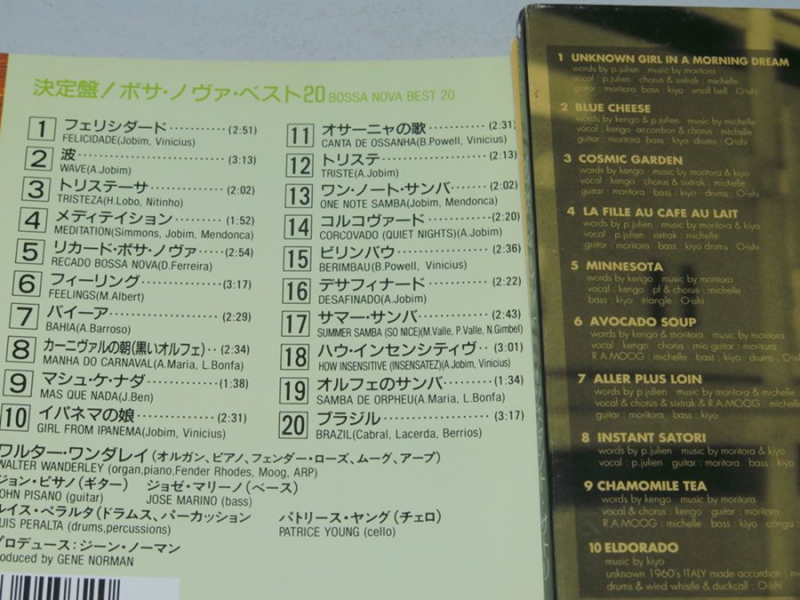 決定盤!ボサ・ノヴァ・ベスト20 BOSSA NOVA BEST 20
1 フェリシダード··········(2:51)
FELICIDADE(Jobim, Vinicius)
2 波··················(3:13)
WAVE(A.Jobim)
3 トリステーサ············(2:02)
TRISTEZA(H.Lobo, Nitinho)
4 メディテイション··········(1:52)
MEDITATION(Simmons, Jobim, Mendonca)
5 リカード・ボサ・ノヴァ·····(2:54)
RECADO BOSSA NOVA(D.Ferreira)
6 フィーリング············(3:17)
FEELINGS(M.Albert)
7 バイーア··············(2:29)
BAHIA(A.Barroso)
8 カーニヴァルの朝(黒いオルフェ)··(2:34)
MANHA DO CARNAVAL(A.Maria, L.Bonfa)
9 マシュ・ケ・ナダ··········(1:38)
MAS QUE NADA(J.Ben)
10 イパネマの娘············(2:31)
GIRL FROM IPANEMA(Jobim, Vinicius)
11 オサーニャの歌··········(2:31)
CANTA DE OSSANHA(B.Powell, Vinicius)
12 トリステ··············(2:13)
TRISTE(A.Jobim)
13 ワン・ノート・サンバ·····(2:02)
ONE NOTE SAMBA(Jobim, Mendonca)
14 コルコヴァード··········(2:20)
CORCOVADO (QUIET NIGHTS)(A.Jobim)
15 ビリンバウ············(2:36)
BERIMBAU(B.Powell, Vinicius)
16 デサフィナード··········(2:22)
DESAFINADO(A.Jobim)
17 サマー・サンバ··········(2:43)
SUMMER SAMBA (SO NICE)(M.Valle, P.Valle, N.Gimbel)
18 ハウ・インセンシティヴ··(3:01)
HOW INSENSITIVE (INSENSATEZ)(A.Jobim, Vinicius)
19 オルフェのサンバ········(1:34)
SAMBA DE ORPHEU(A.Maria, L.Bonfa)
20 ブラジル··············(3:17)
BRAZIL(Cabral, Lacerda, Berrios)
ワルター・ワンダレイ(オルガン、ピアノ、フェンダー・ローズ、ムーグ、アープ)
WALTER WANDERLEY (organ,piano,Fender Rhodes, Moog, ARP)
ジョン・ピサノ(ギター) ジョゼ・マリーノ(ベース)
OHN PISANO (guitar) JOSE MARINO (bass)
ルイス・ペラルタ(ドラムス、パーカッション パトリース・ヤング(チェロ)
UIS PERALTA (drums,percussions) PATRICE YOUNG (cello)
プロデュース:ジーン・ノーマン
oduced by GENE NORMAN
1 UNKNOWN GIRL IN A MORNING DREAM
words by p.julien music by moritora
vocal : p.julien chorus & sixtrak : michelle
guitar : moritora bass : kiyo small bell : O-ishi
2 BLUE CHEESE
words by kengo & p.julien music by michelle
vocal : kengo accordion & chorus : michelle
guitar : moritora bass : kiyo drums : O-ishi
3 COSMIC GARDEN
words by kengo music by moritora & kiyo
vocal : kengo chorus & sixtrak : michelle
guitar : moritora bass : kiyo drums : O-ishi
4 LA FILLE AU CAFE AU LAIT
words by p.julien music by moritora
vocal : p.julien sixtrak : michelle
guitar : moritora bass : kiyo drums : O-ishi
5 MINNESOTA
words by kengo music by moritora
vocal : kengo pf & chorus : michelle
bass : kiyo triangle : O-ishi
6 AVOCADO SOUP
words by kengo & moritora music by moritora
vocal : kengo chorus : mio guitar : moritora
R.A.MOOG : michelle bass : kiyo drums : O-ishi
7 ALLER PLUS LOIN
words by p.julien music by michelle
vocal & chorus & sixtrak & R.A.MOOG : michelle
guitar : moritora bass : kiyo
8 INSTANT SATORI
words by p.julien music by moritora & kiyo
vocal : p.julien guitar : moritora bass : kiyo
9 CHAMOMILE TEA
words by kengo music by moritora
vocal : kengo guitar : moritora
R.A.MOOG : michelle bass : kiyo conga
10 ELDORADO
music by kiyo
unknown 1960's ITALY made accordion : m
drums & wind whistle & duckcall : O-ishi